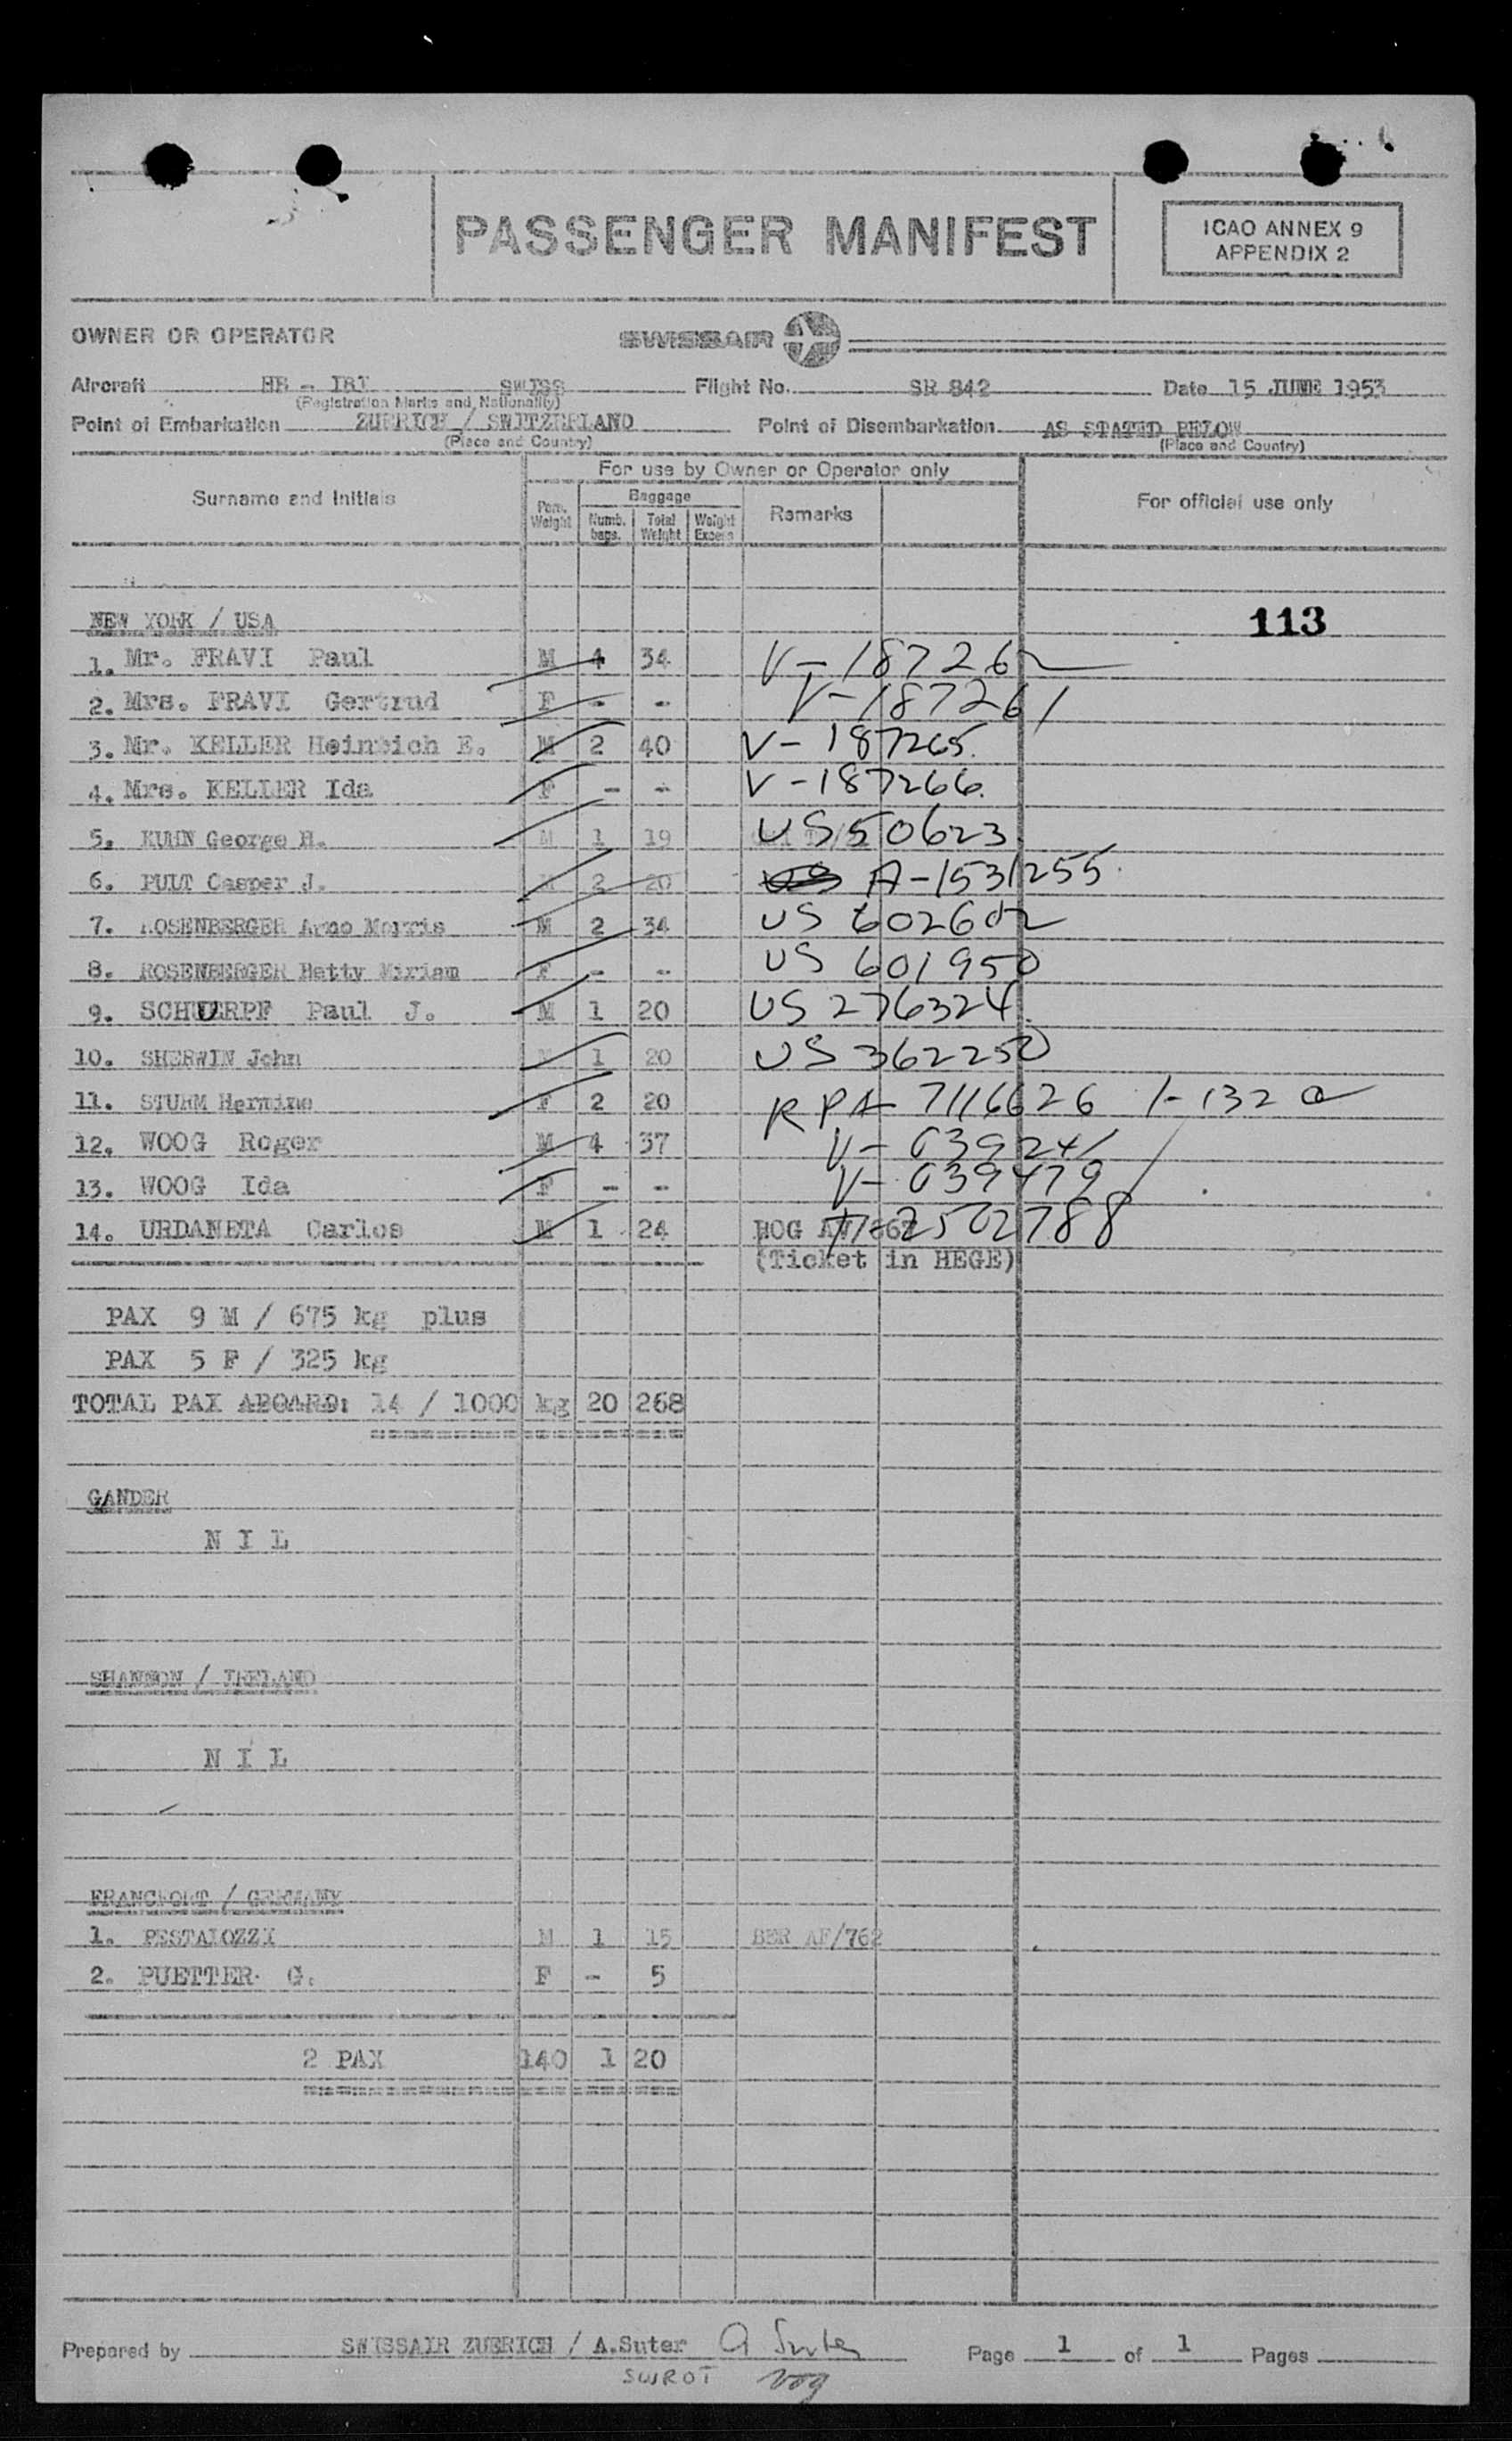 PASSENGER MANIFEST
ICAO ANNEX 9
APPENDIX 2
OWNER OR OPERATOR SWISSAIR
Aircraft HB - IBI SWISS Flight No. SR 842 Date 15 JUNE 1953
(Registration Marks and Nationality)
Point of Embarkation ZUERICH / SWITZERLAND Point of Disembarkation AS STATED BELOW
(Place and Country) (Place and Country)
For use by Owner or Operator only
Surname and Initials Pers. Weight Baggage Numb. bags. Total Weight Weight Excess Remarks For official use only
NEW YORK / USA 113
1. Mr. FRAVI Paul M 4 34 V-187262
2. Mrs. FRAVI Gertrud F - - V-187261
3. Mr. KELLER Heinrich E. M 2 40 V-187265.
4. Mrs. KELLER Ida F - - V-187266.
5. KUHN George H. M 1 19 US 50623
6. PULT Casper J. M 2 20 US A-1531255.
7. ROSENBERGER Arno Morris M 2 34 US 602602
8. ROSENBERGER Hetty Miriam F - - US 601950
9. SCHUERPF Paul J. M 1 20 US 276324.
10. SHERWIN John M 1 20 US 362250
11. STURM Hermine F 2 20 RPA 7116626 1-132 a
12. WOOG Roger M 4 37 V-039241
13. WOOG Ida F - - V-039479
14. URDANETA Carlos M 1 24 BOG 2502788
(Ticket in HEGE)
PAX 9 M / 675 kg plus
PAX 5 F / 325 kg
TOTAL PAX ABOARD: 14 / 1000 kg 20 268
GANDER
N I L
SHANNON / IRELAND
N I L
FRANCFORT / GERMANY
1. PESTALOZZI M 1 15 BER AF/762
2. PUETTER G. F - 5
2 PAX 140 1 20
Prepared by SWISSAIR ZUERICH / A.Suter A Suter Page 1 of 1 Pages
SWROT